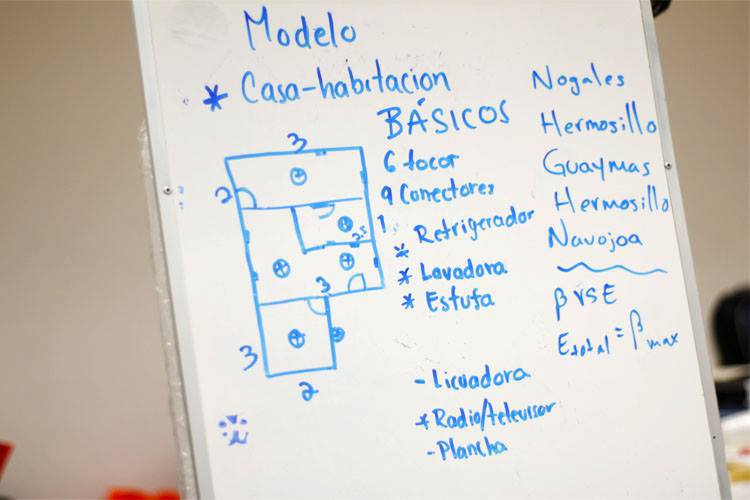 Modelo
* Casa-habitacion
BÁSICOS
6 focos
9 Conectores
* Refrigerador
* Lavadora
* Estufa
- Licuadora
* Radio/televisor
- Plancha
Nogales
Hermosillo
Guaymas
Hermosillo
Navojoa
β VS E
Etotal = βmax
3
2
1
2.5
3
3
2